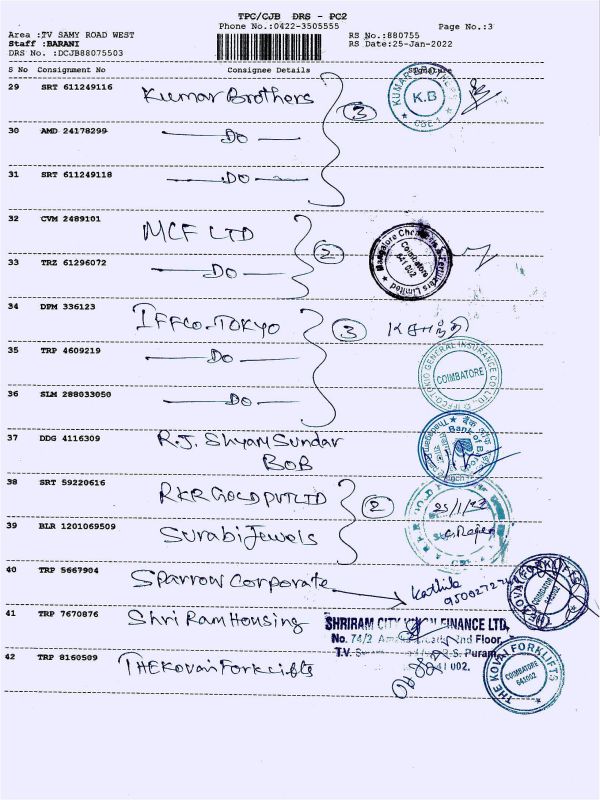 TPC/CJB DRS - PC2
Phone No.:0422-3505555
Page No.:3
Area :TV SAMY ROAD WEST
RS No.:880755
Staff :BARANI
RS Date:25-Jan-2022
DRS No. :DCJB88075503
S No Consignment No Consignee Details Signature
29 SRT 611249116 Kumar Brothers
3
KUMAR BROTHERS K.B CBE-1
30 AMD 24178299 —DO—
31 SRT 611249118 —DO—
32 CVM 2489101 MCF LTD
2
Mangalore Chemicals & Fertilizers Limited Coimbatore 641 002
33 TRZ 61296072 —DO—
34 DPM 336123 IFFCO-TOKYO
3
35 TRP 4609219 —DO—
IFFCO TOKIO GENERAL INSURANCE CO. LTD. COIMBATORE
36 SLM 288033050 —DO—
37 DDG 4116309 R.J. Shyam Sundar
BOB
Bank of
38 SRT 59220616 RKR GOLD PVT LTD
2
25/1/22
39 BLR 1201069509 Surabi Jewels
40 TRP 5667904 Sparrow Corporate
THE KOVAI FORKLIFTS COIMBATORE 641002
41 TRP 7670876 Shri Ram Housing
SHRIRAM CITY UNION FINANCE LTD,
No. 74/2 2nd Floor,
T.V. R.S. Puram,
641 002.
42 TRP 8160509 THE Kovai Forklifts
THE KOVAI FORKLIFTS COIMBATORE 641002